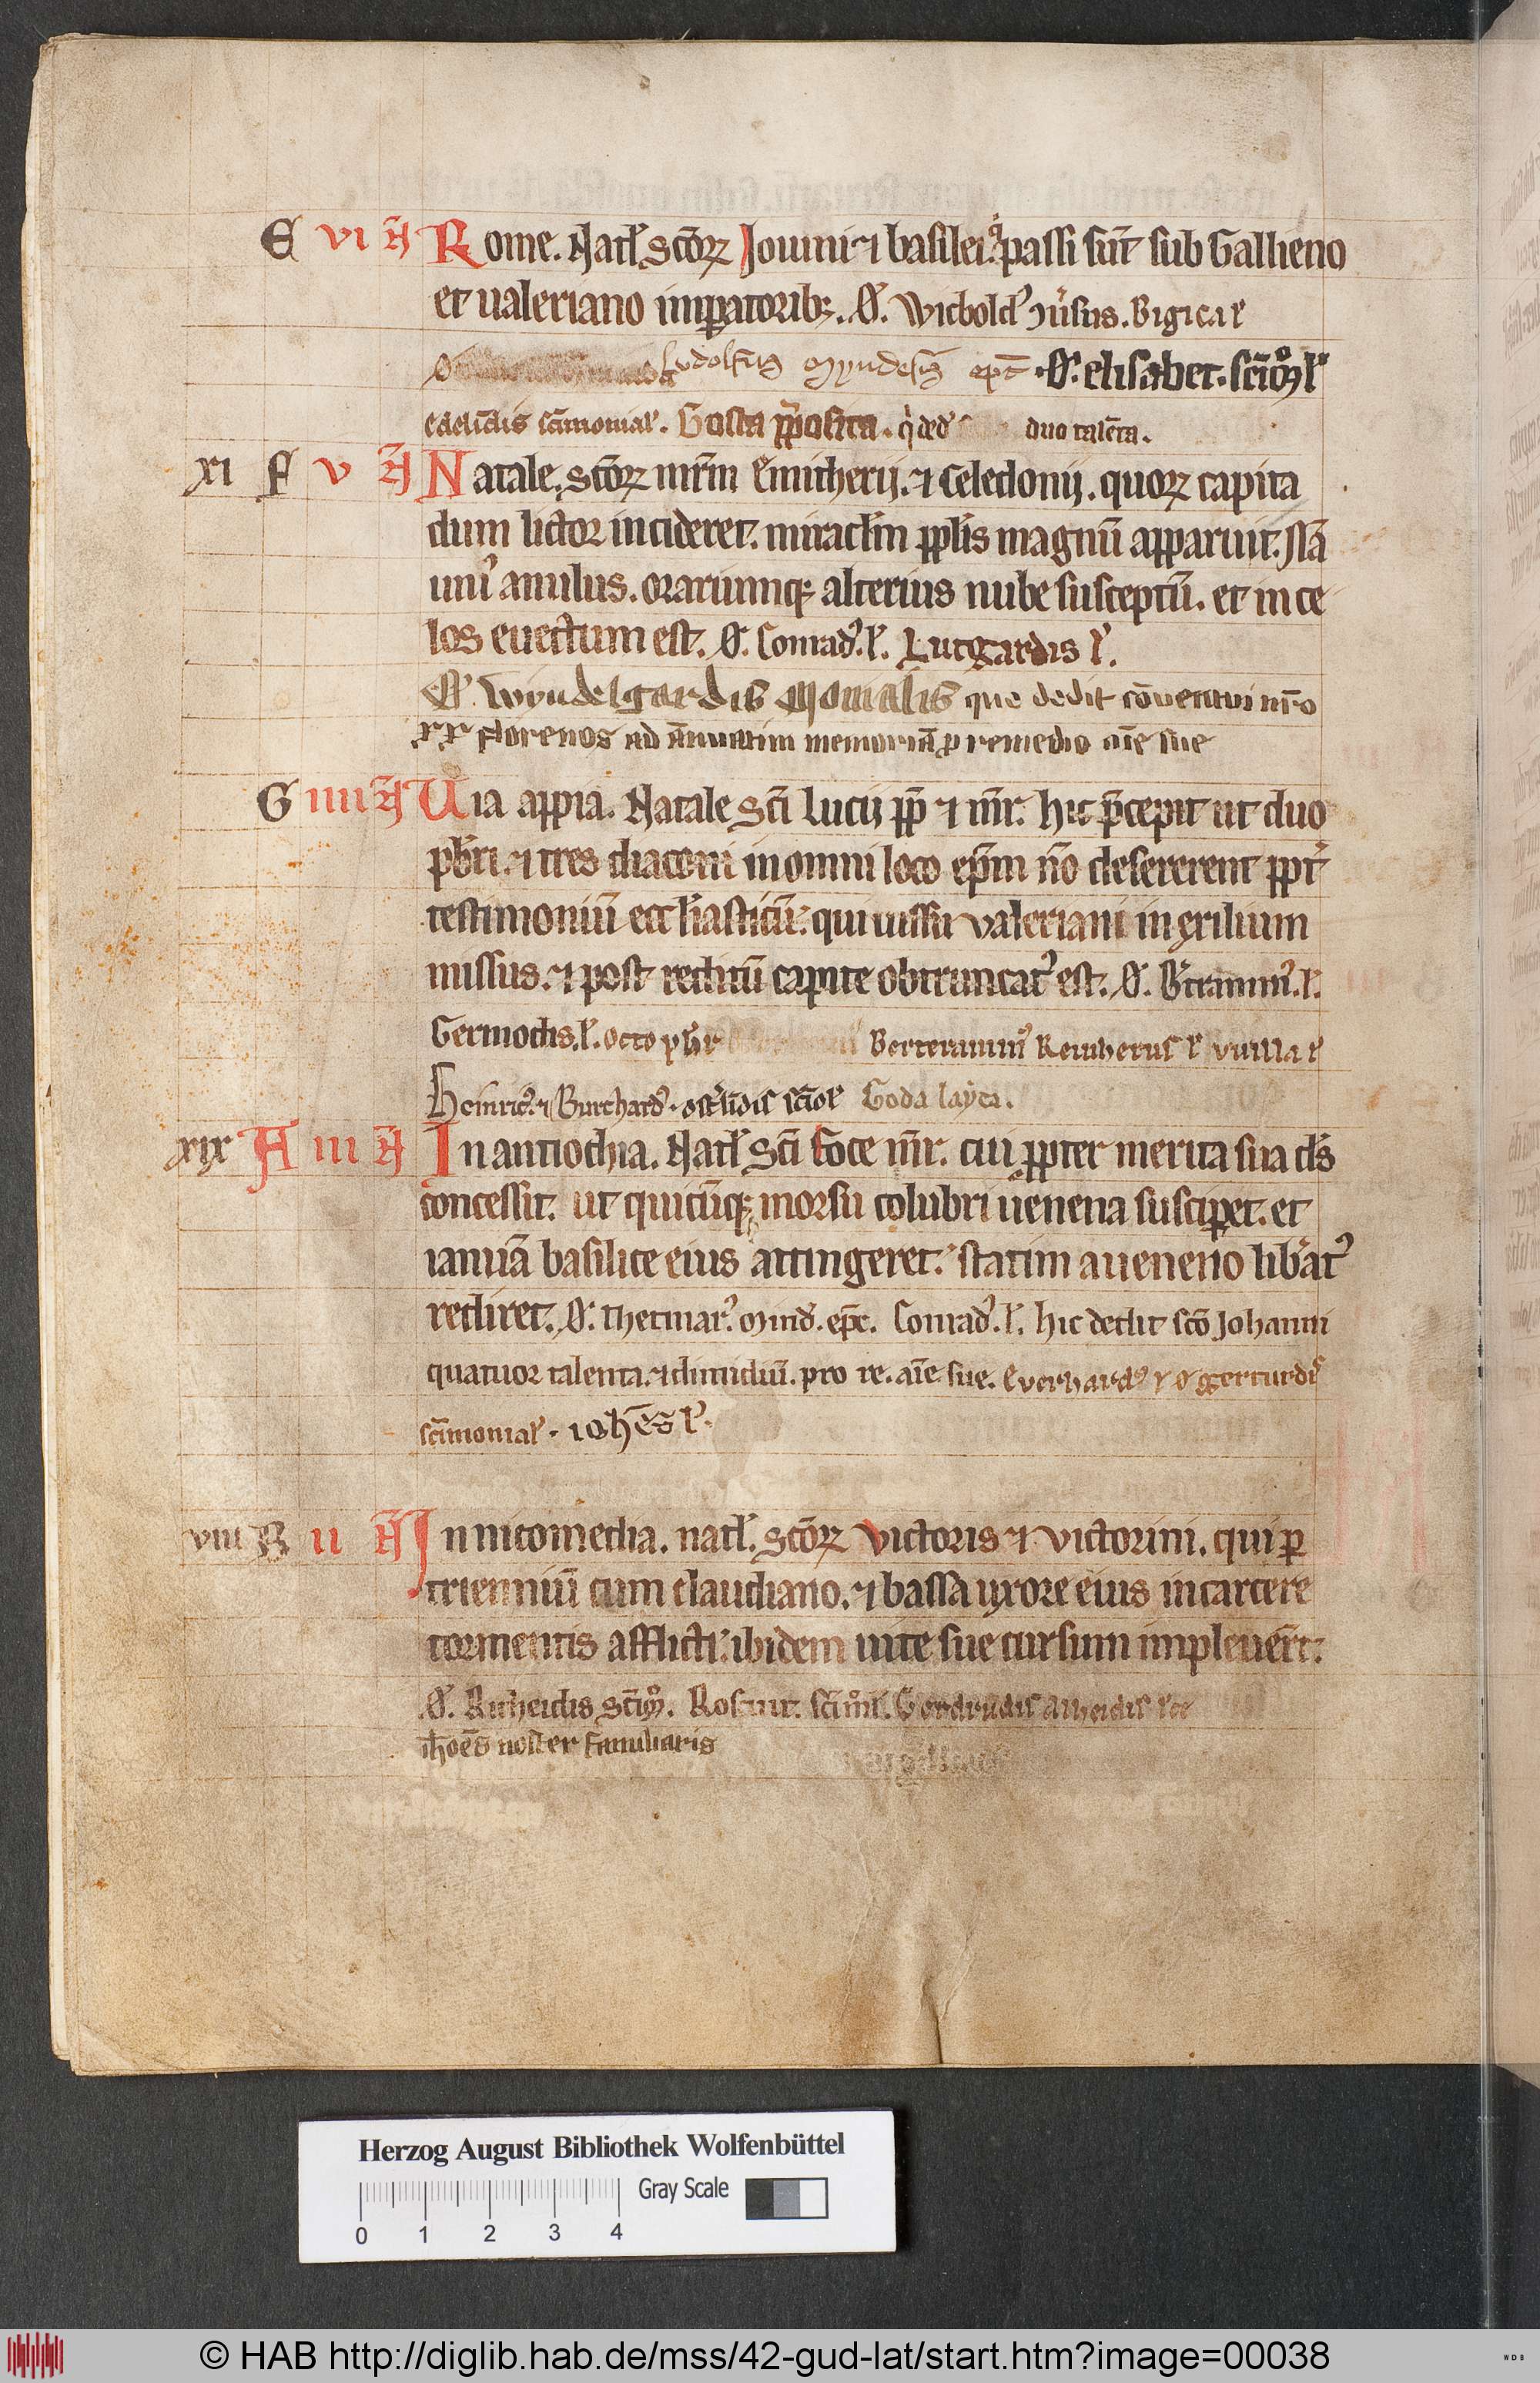 E VI Ā Rome. Natl̛. Sc̄oꝝ Iouini ⁊ basilei. q̊ passi sūt sub Gallieno
et ualeriano imꝑatoribꝫ. O᷒. Wicbold᷒ ꝯuersus. Bigica l̛
O᷒ ludolfus Myndēsis ep̄c. O᷒. elisabet. sc̄imo͛l̛
sc̄imonial̛. Gosta p̄posita. q̇ ded̛ duo talēta.
XI F V Ā Natale. Sc̄oꝝ mr̄m Emitherij. ⁊ Celedonij. quoꝝ capita
dum lictor incideret. miracl̄m ppl̄is magnū apparuit. Nā
uni᷒ anulus. orariumqꝫ alterius nube susceptū. et in ce
los euectum est. O᷒. Conrad᷒. l̛. Lutgardis l̛.
O᷒. Wyndelgardis Monialis que dedit cōuentui nr̄o
xx florenos ad ānuatim memoriā ꝓ remedio aīe sue
G IIII Ā Uia appia. Natale Sc̄i Lucij pp̄ ⁊ mr̄. hic p̄cepit ut duo
pb̄ri. ⁊ tres diaconi in omni loco ep̄m nō desererent ppt̛
testimoniū eccl̄iasticū. qui iussu valeriani in exilium
missus. ⁊ post reditū capite obtruncat᷒ est. O᷒. B̄tramm᷒. l̛.
Germodis. l̛. octo pb̄r Berteramm᷒ Reinberus l̛
Heinric᷒. ⁊ Burchard᷒. sc̄imol̛ Goda layca.
XIX A III Ā In antiochia. Natl̛ Sc̄i foce mr̄. cui ppter merita sua dn̄s
concessit. ut quicūqꝫ morsu colubri uenena susciꝑet. et
ianuā basilice eius attingeret. statim a ueneno lib̛at᷒
rediret. O᷒. Thetmar᷒. Mind̛. ep̄c. Conrad᷒. l̛. hic dedit sc̄o Johanni
quatuor talenta. ⁊ dimidiū. pro re. aīe sue. Euerhard᷒ l̛ O᷒ ggertrudꝭ
sc̄imonial̛. ioh̄es l̛.
VIII B II Ā In nicomedia. natl̛. Sc̄oꝝ Victoris ⁊ Victorini. qui ꝑ
trienniū cum claudiano. ⁊ bassa uxore eius in carcere
tormentis afflicti. ibidem uite sue cursum impleuer̄t.
O᷒. Richeidis Sc̄imo͛. sc̄imo͛l̛. Gerdrudis Alheidis
ih̄oēs noster familiaris
Herzog August Bibliothek Wolfenbüttel
Gray Scale
0 1 2 3 4
© HAB http://diglib.hab.de/mss/42-gud-lat/start.htm?image=00038
WDB